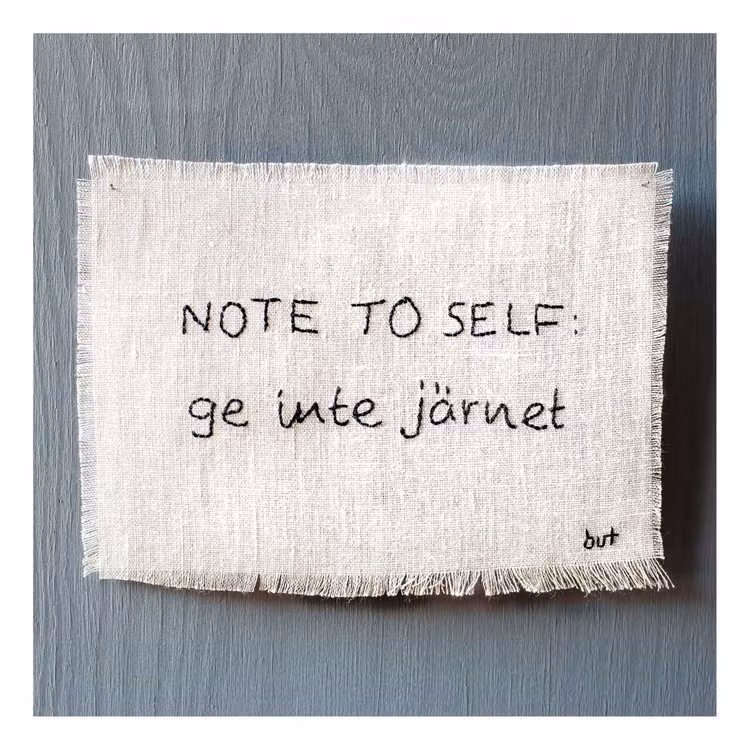 NOTE TO SELF:
ge inte järnet
but